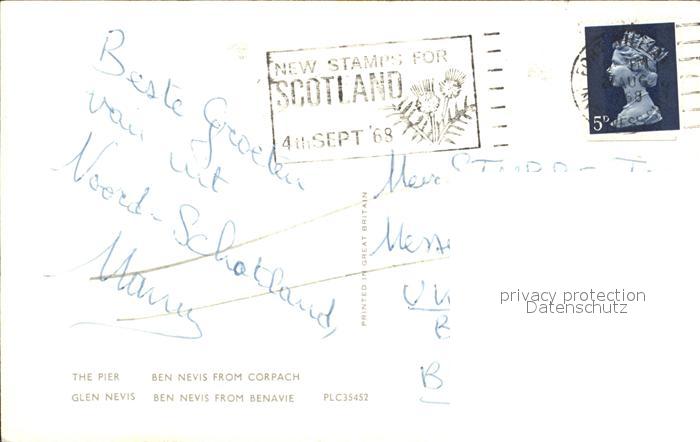 NEW STAMPS FOR
SCOTLAND
4TH SEPT '68
5D
Beste Groeten
van uit
Noord-Schotland,
PRINTED IN GREAT BRITAIN
privacy protection
Datenschutz
B
THE PIER BEN NEVIS FROM CORPACH
GLEN NEVIS BEN NEVIS FROM BENAVIE PLC35452